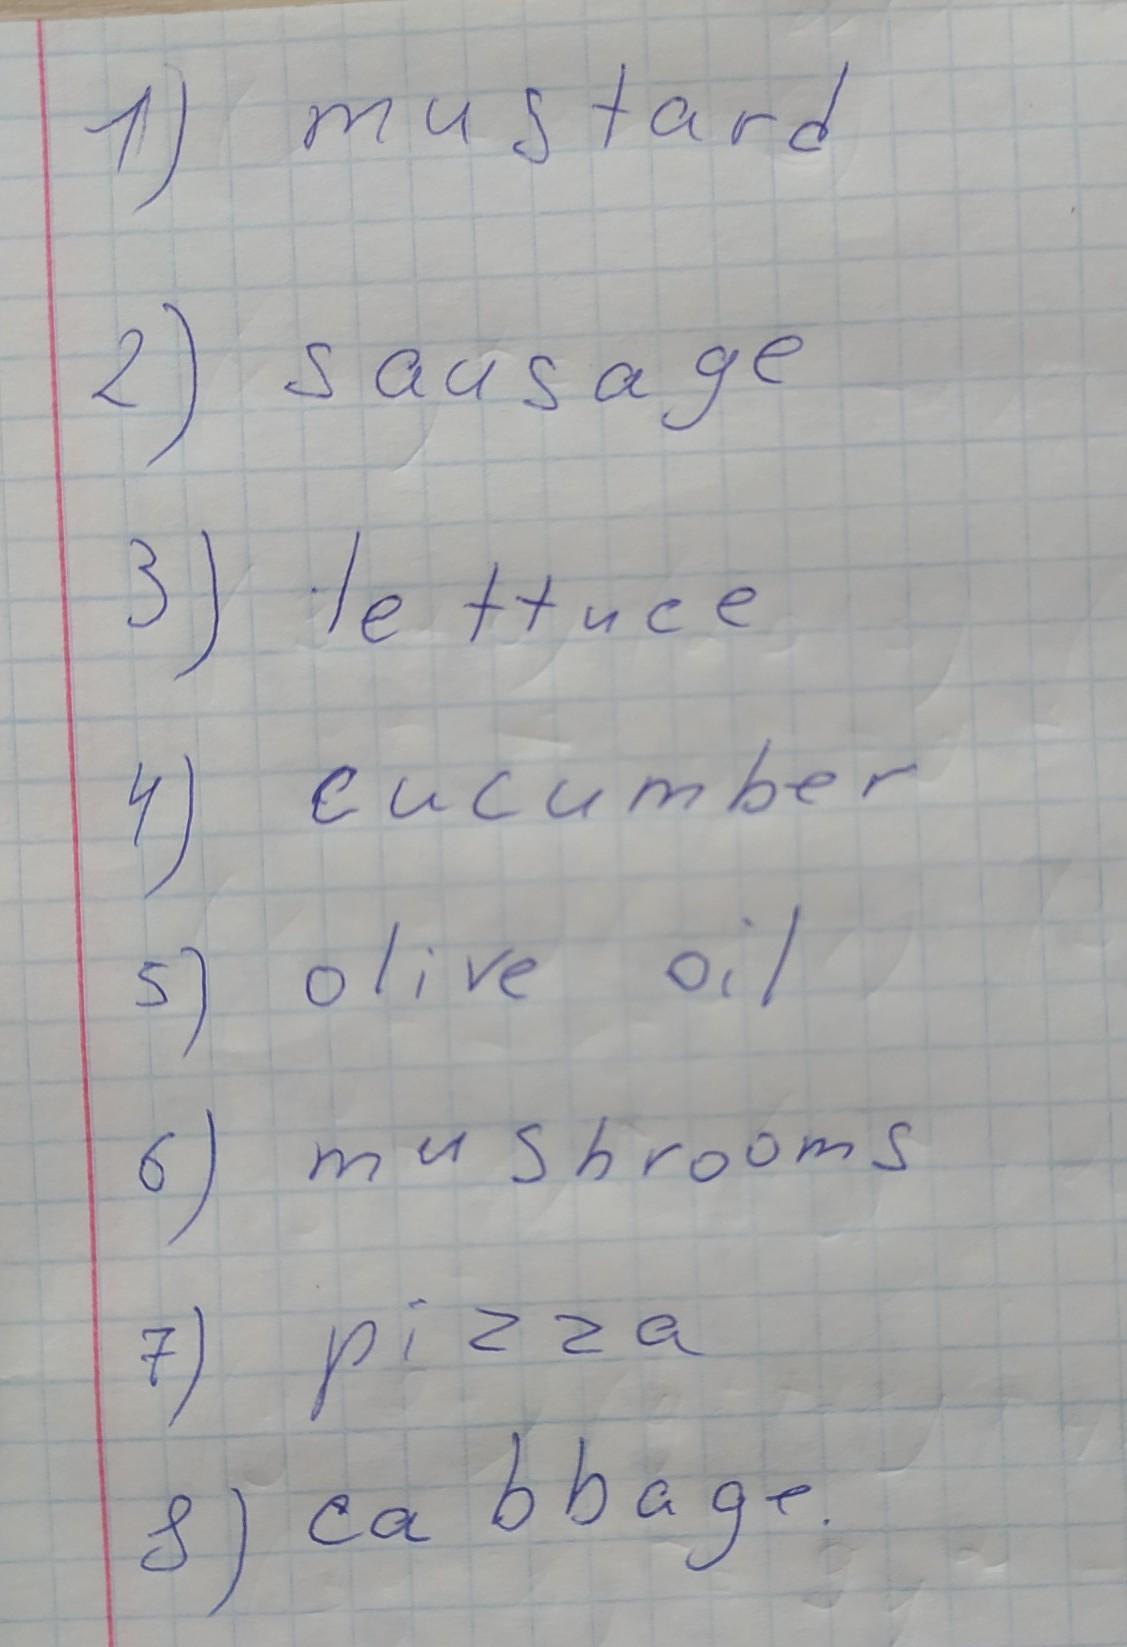 1) mustard
2) sausage
3) lettuce
4) cucumber
5) olive oil
6) mushrooms
7) pizza
8) cabbage.